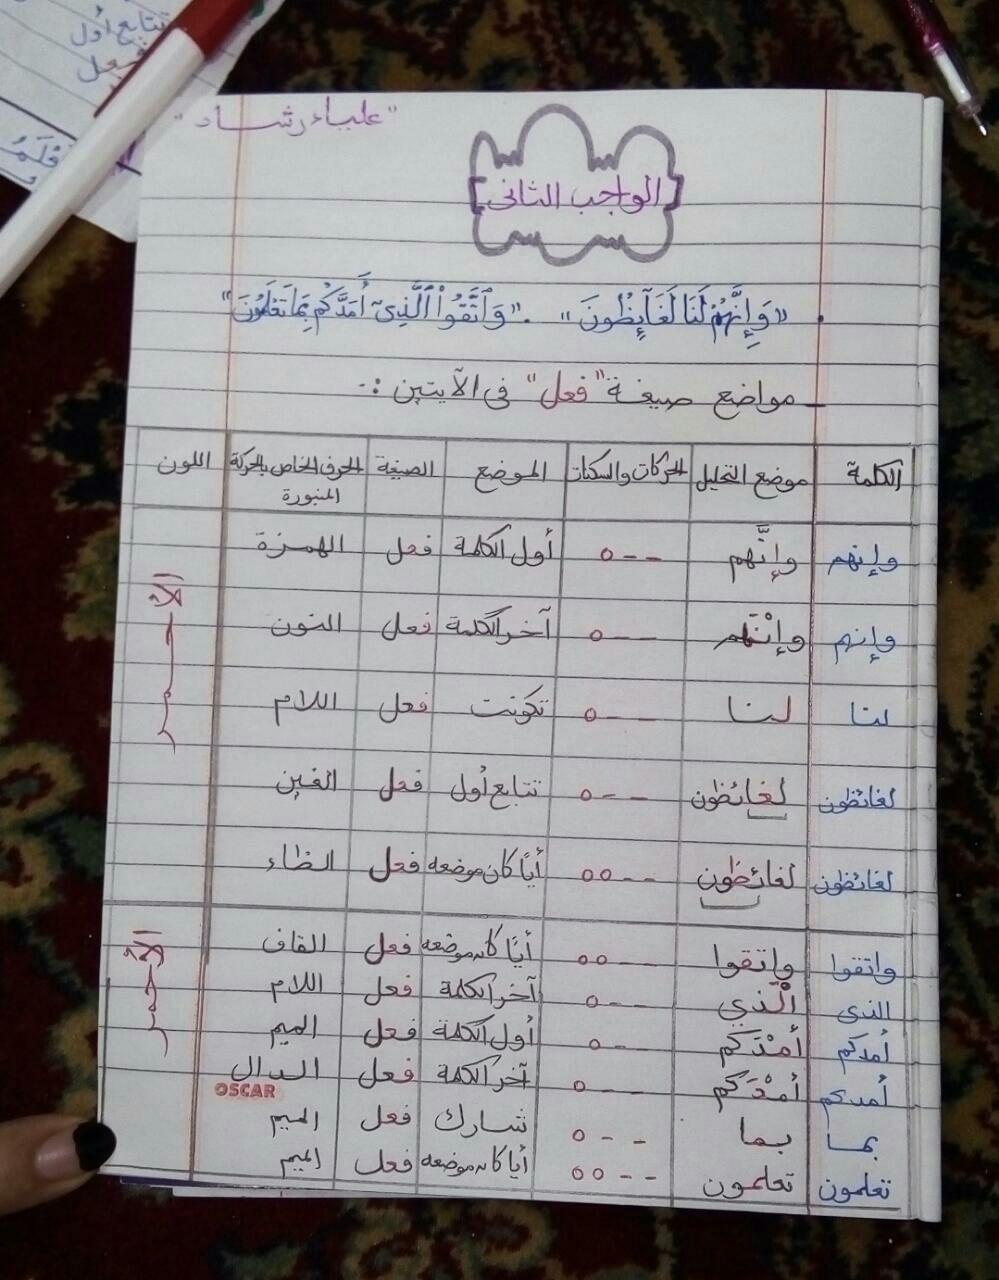 تتابع أول
"علياء رشاد"
[الواجب الثانى]
. "وَإِنَّهُمْ لَنَا لَغَآئِظُونَ" . "وَٱتَّقُوا۟ ٱلَّذِىٓ أَمَدَّكُم بِمَا تَعْلَمُونَ"
_ مواضع صيغة "فعل" فى الآيتين :-
الكلمة | موضع التحليل | الحركات والسكنات | الموضع | الصيغة | الحرف الخاص بالحركة المنبورة | اللون
وإنهم | وإنَّهم | --o | أول الكلمة | فعل | الهمزة
وإنهم | وإنْنَهم | ---o | آخر الكلمة | فعل | النون
لنا | لنا | --o | تكونت | فعل | اللام
لغائظون | لغائظون | --o | تتابع أول | فعل | الغين
لغائظون | لغائظون | --oo | أيًا كان موضعه | فعل | الظاء
واتقوا | واتقوا | --oo | أيًا كان موضعه | فعل | القاف
الذى | الْذي | --o | آخر الكلمة | فعل | اللام
أمدكم | أمْدَكم | --o | أول الكلمة | فعل | الميم
أمدكم | أمْدَكم | --o | آخر الكلمة | فعل | الدال
OSCAR
بما | بما | --o | شارك | فعل | الميم
تعلمون | تعلمون | --oo | أيا كان موضعه | فعل | الميم